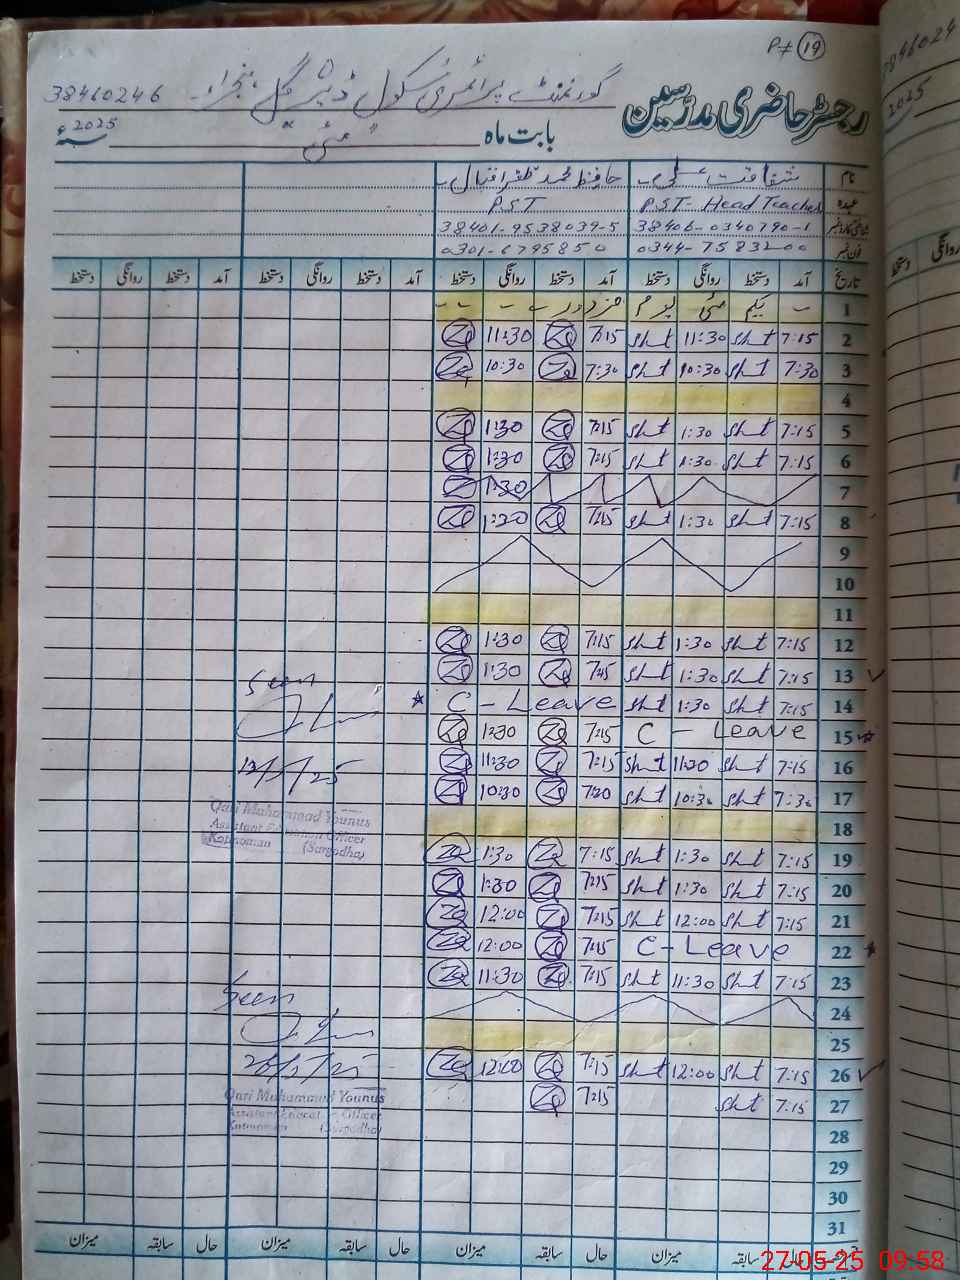 P# 19
رجسٹر حاضری مدرسین
گورنمنٹ پرائمری سکول 38460246
بابت ماہ "مئی" 2025ء
نام شفاقت علی حافظ محمد ظفر اقبال
عہدہ P.S.T- Head Teacher P.S.T
شناختی کارڈ نمبر 38406-0340790-1 38401-9538039-5
فون نمبر 0344-7583200 0301-6795850
تاریخ آمد دستخط روانگی دستخط آمد دستخط روانگی دستخط آمد دستخط روانگی دستخط آمد دستخط روانگی دستخط
1 یکم مئی یوم مزدور
2 7:15 Sht 11:30 Sht 7:15 Za 11:30 Za
3 7:30 Sht 10:30 Sht 7:30 Za 10:30 Za
4
5 7:15 Sht 1:30 Sht 7:15 Za 1:30 Za
6 7:15 Sht 1:30 Sht 7:15 Za 1:30 Za
7 1:30
8 7:15 Sht 1:30 Sht 7:15 Za 1:30 Za
9
10
11
12 7:15 Sht 1:30 Sht 7:15 Za 1:30 Za
13 7:15 Sht 1:30 Sht 7:15 Za 1:30 Za
14 7:15 Sht 1:30 Sht C - Leave
15 C - Leave 7:15 Za 1:30 Za
16 7:15 Sht 11:30 Sht 7:15 Za 11:30 Za
17 7:30 Sht 10:30 Sht 7:30 Za 10:30 Za
18
19 7:15 Sht 1:30 Sht 7:15 Za 1:30 Za
20 7:15 Sht 1:30 Sht 7:15 Za 1:30 Za
21 7:15 Sht 12:00 Sht 7:15 Za 12:00 Za
22 C-Leave 7:15 Za 12:00 Za
23 7:15 Sht 11:30 Sht 7:15 Za 11:30 Za
24
25
26 7:15 Sht 12:00 Sht 7:15 Za 12:00 Za
27 7:15 Sht 7:15 Za
28
29
30
31
Seen
Qari Muhammad Younus
Assistant Education Officer
Kotmoman (Sargodha)
Seen
26/5/25
Qari Muhammad Younus
Assistant Education Officer
Kotmoman (Sargodha)
حال سابقہ میزان حال سابقہ میزان حال سابقہ میزان حال سابقہ میزان
3846024
2025
روانگی دستخط
27-05-25 09:58